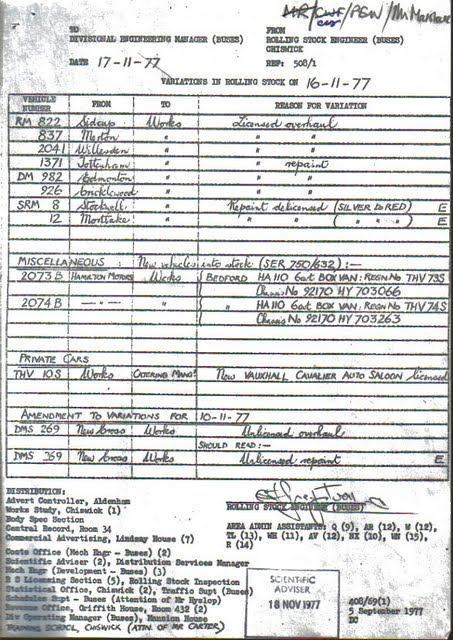 MR/CWF/PSW/Mr Marshall
TO
DIVISIONAL ENGINEERING MANAGER (BUSES)
FROM
ROLLING STOCK ENGINEER (BUSES)
CHISWICK
DATE 17-11-77
REF: 508/1
VARIATIONS IN ROLLING STOCK ON 16-11-77
VEHICLE NUMBER FROM TO REASON FOR VARIATION
RM 822 Sidcup Works Licensed overhaul
837 Merton " " "
2041 Willesden " " "
1371 Tottenham " " repaint
DM 982 Edmonton " " "
926 Cricklewood " " "
SRM 8 Stockwell " Repaint delicensed (SILVER to RED) E
12 Mortlake " " " ( " " " ) E
MISCELLANEOUS : New vehicles into stock (SER 750/632) :—
2073 B HAMILTON MOTORS Works BEDFORD HA 110 6cwt BOX VAN: REGN No THV 73S
Chassis No 92170 HY 703066
2074 B — " — " " HA 110 6cwt BOX VAN: REGN No THV 74S
Chassis No 92170 HY 703263
PRIVATE CARS
THV 10S Works CATERING MANGR New VAUXHALL CAVALIER AUTO SALOON licensed
AMENDMENT TO VARIATIONS FOR 10-11-77
DMS 269 New Cross Works Unlicensed overhaul
SHOULD READ:—
DMS 369 New Cross Works Unlicensed repaint E
DISTRIBUTION:
Advert Controller, Aldenham
Works Study, Chiswick (1)
Body Spec Section
Central Record, Room 34
Commercial Advertising, Lindsay House (7)
Costs Office (Mech Engr - Buses) (2)
Scientific Adviser (2), Distribution Services Manager
Mech Engr (Development - Buses) (3)
R S Licensing Section (5), Rolling Stock Inspection
Statistical Office, Chiswick (2), Traffic Supt (Buses)
Schedules Supt - Buses (Attention of Mr Hyslop)
Revenue Office, Griffith House, Room 432 (2)
Div Operating Manager (Buses), Mansion House
TRAINING SCHOOL, CHISWICK (ATTN. OF MR CARTER)
ROLLING STOCK ENGINEER (BUSES)
AREA ADMIN ASSISTANTS: Q (9), AR (12), W (12),
TL (13), WH (11), AV (12), NX (10), UN (15),
R (14)
SCIENTIFIC
ADVISER
18 NOV 1977
408/69(1)
5 September 1977
DC